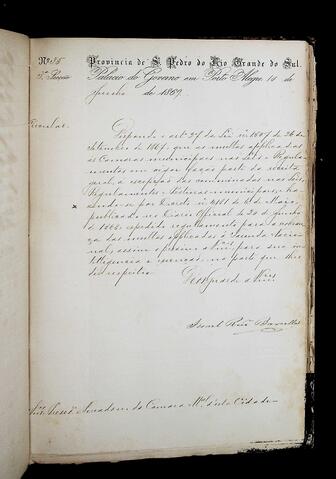 Nº 35 Provincia de S. Pedro do Rio Grande do Sul.
Palacio do Governo em Porto Alegre 10 de
Junho de 1869.
Circular.
Dispondo o art. 27 da Lei nº 1507 de 26 de
Setembro de 1867, que as multas applicadas
ás Camaras municipaes nas Leis e Regula-
mentos em vigor façam parte da receita
geral, á excepção das
Regulamentos e Posturas municipaes,
por Decreto nº 4181 de 6 de Maio,
publicado no Diario Official de 20 de Junho
de 1868, expedido regulamento para a cobran-
ça das multas applicadas á Fazenda Nacio-
nal, assim o previno a Vmces para sua in-
telligencia e execução, na parte que lhes
diz respeito.
Deos Guarde a Vmces
Israel Barcellos
Vereadores da Camara Mal desta Cidade